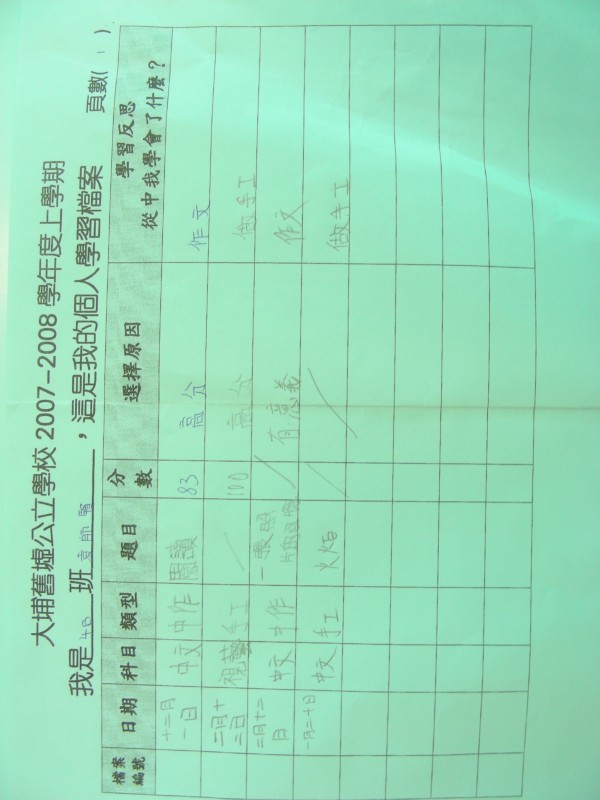 大埔舊墟公立學校 2007-2008 學年度上學期
我是 4B 班 ，這是我的個人學習檔案
頁數( 1 )
檔案編號 日期 科目 類型 題目 分數 選擇原因 學習反思 從中我學會了什麼？
十二月一日 中文 中作 閱讀 83 高分 作文
二月十二日 視藝 手工 100 高分 做手工
二月十二日 中文 中作 一張照片 有意義 作文
一月二十日 中文 手工 火焰 做手工